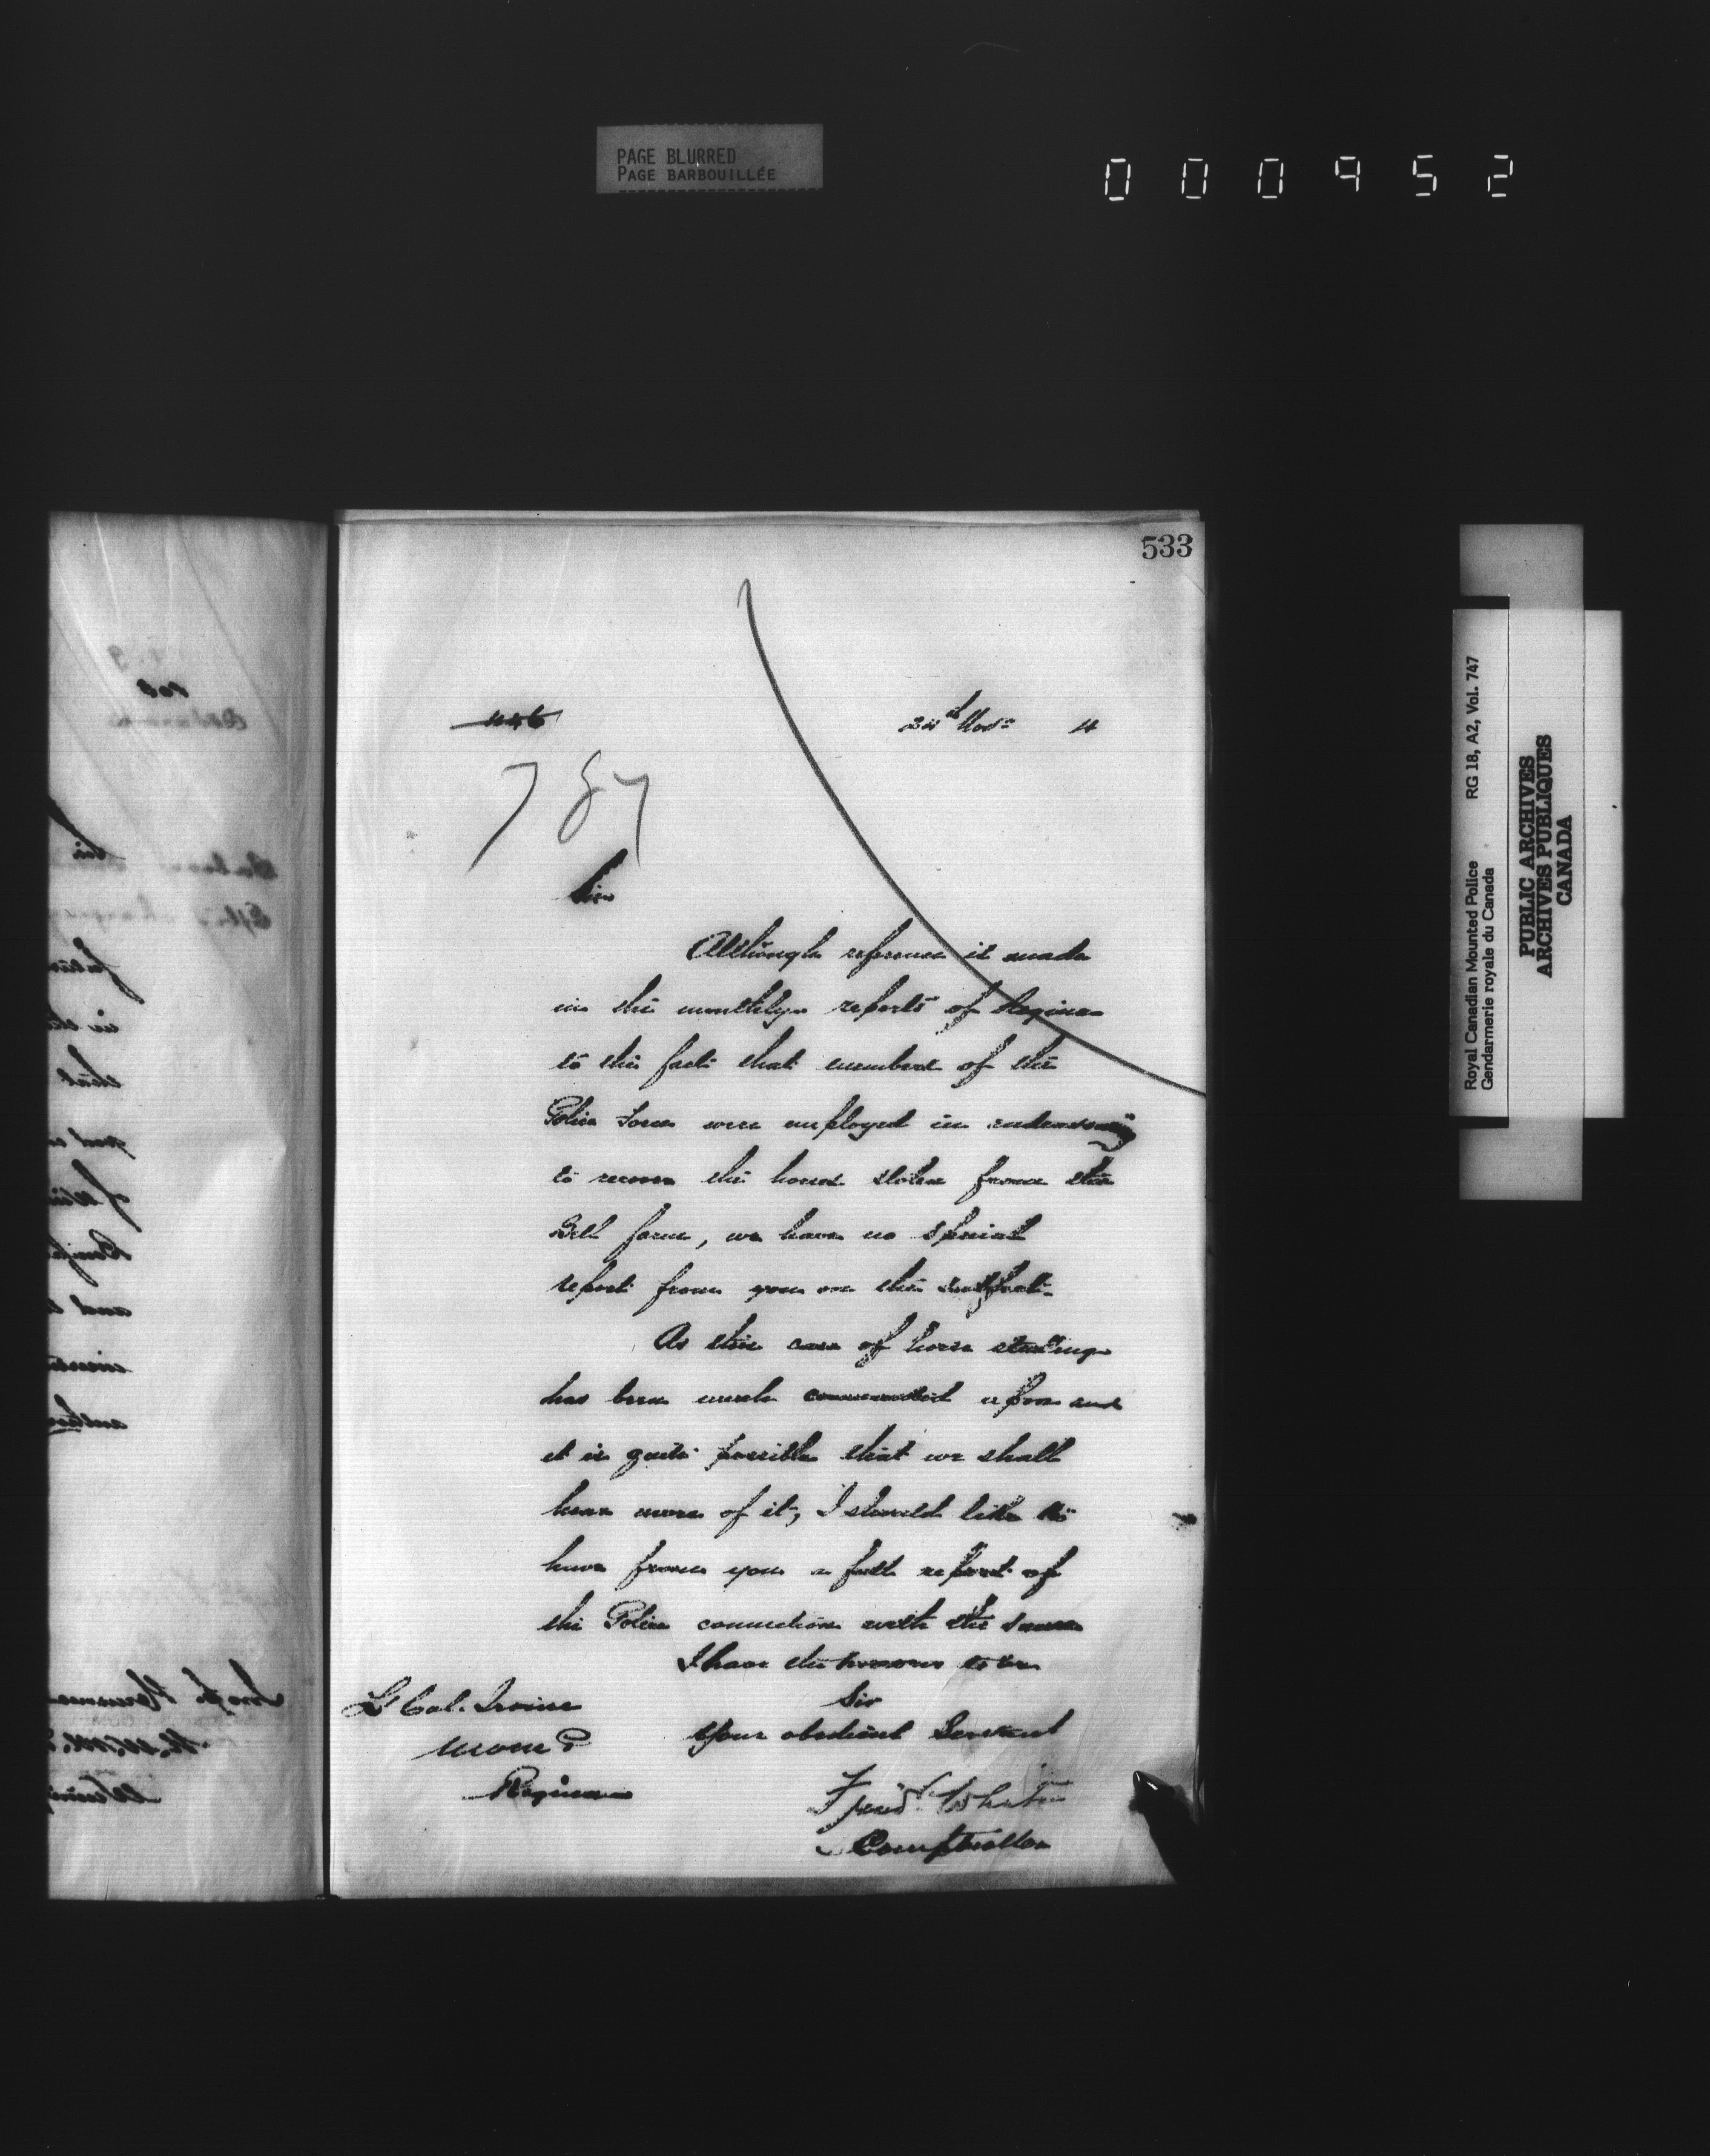 PAGE BLURRED
PAGE BARBOUILLÉE
000952
533
446
24th Novr 4
787
Sir
Although reference is made
in the monthly reports of Regina
to the fact that members of the
Police Force were employed in endeavouring
to recover the horses stolen from the
Bell farm, we have no special
report from you on the subject.
As this case of horse stealing
has been much commented upon and
it is quite possible that we shall
hear more of it, I should like to
have from you a full report of
the Police connection with the same
I have the honour to be
Sir
Your obedient Servant
Lt Col. Irvine
NWMP
Regina
Fred White
Comptroller
Royal Canadian Mounted Police RG 18, A2, Vol. 747
Gendarmerie royale du Canada
PUBLIC ARCHIVES
ARCHIVES PUBLIQUES
CANADA